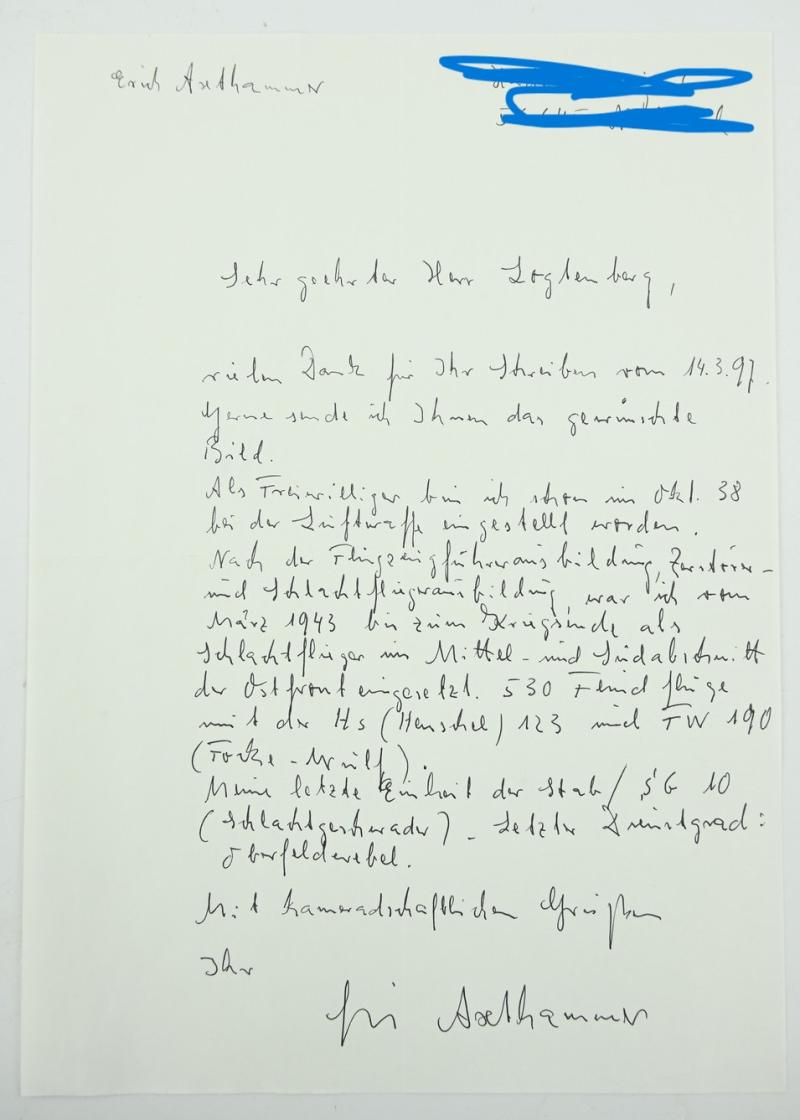 Erich Axthammer
Sehr geehrter Herr Logtenberg,
vielen Dank für Ihr Schreiben vom 14.3.97.
Gerne sende ich Ihnen das gewünschte
Bild.
Als Freiwilliger bin ich schon im Okt. 38
bei der Luftwaffe eingestellt worden.
Nach der Flugzeugführerausbildung, Zerstörer-
und Schlachtfliegerausbildung, war ich vom
März 1943 bis zum Kriegsende als
Schlachtflieger im Mittel- und Südabschnitt
der Ostfront eingesetzt. 530 Feindflüge
mit der Hs (Henschel) 123 und FW 190
(Focke-Wulf).
Meine letzte Einheit der Stab/ SG 10
(Schlachtgeschwader) - Letzter Dienstgrad:
Oberfeldwebel.
Mit kameradschaftlichen Grüßen
Ihr
Axthammer